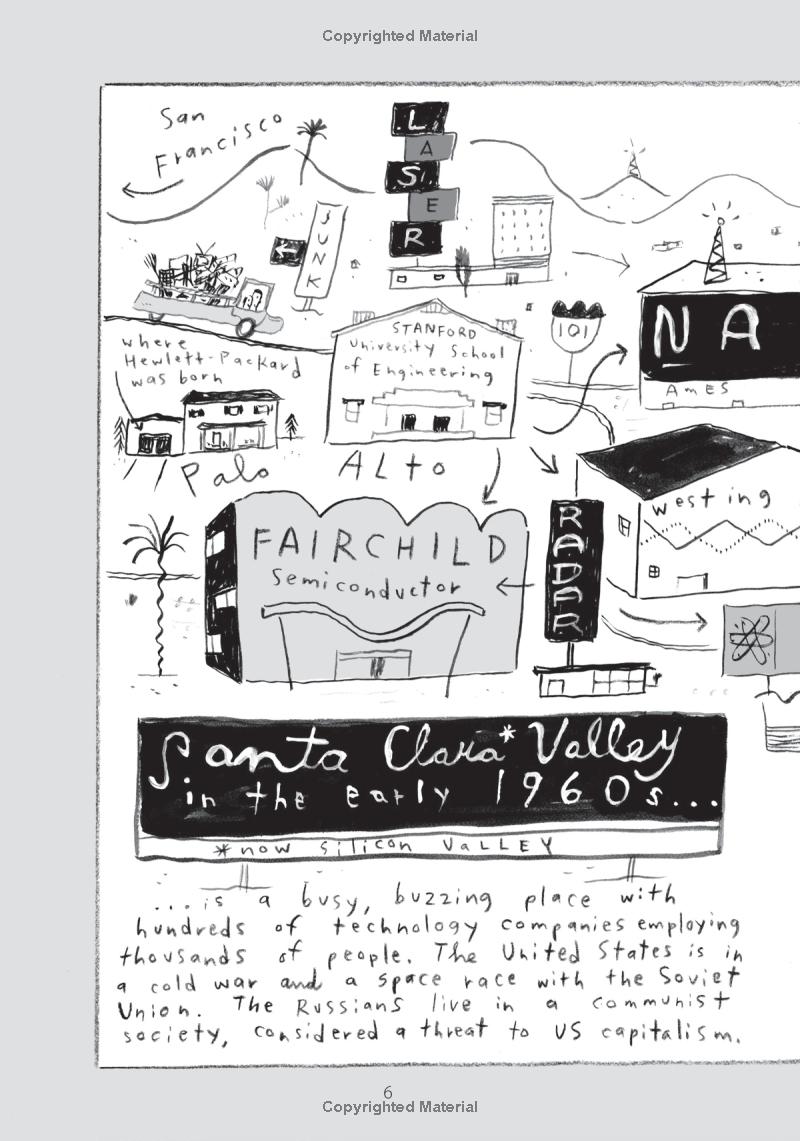 Copyrighted Material
San
Francisco
LASER
JUNK
where
Hewlett-Packard
was born
STANFORD
University School
of Engineering
101
NA
AMES
Palo Alto
westing
FAIRCHILD
semiconductor
RADAR
Santa Clara* Valley
in the early 1960s...
*now silicon VALLEY
...is a busy, buzzing place with
hundreds of technology companies employing
thousands of people. The United States is in
a cold war and a space race with the Soviet
Union. The Russians live in a communist
society, considered a threat to US capitalism.
6
Copyrighted Material